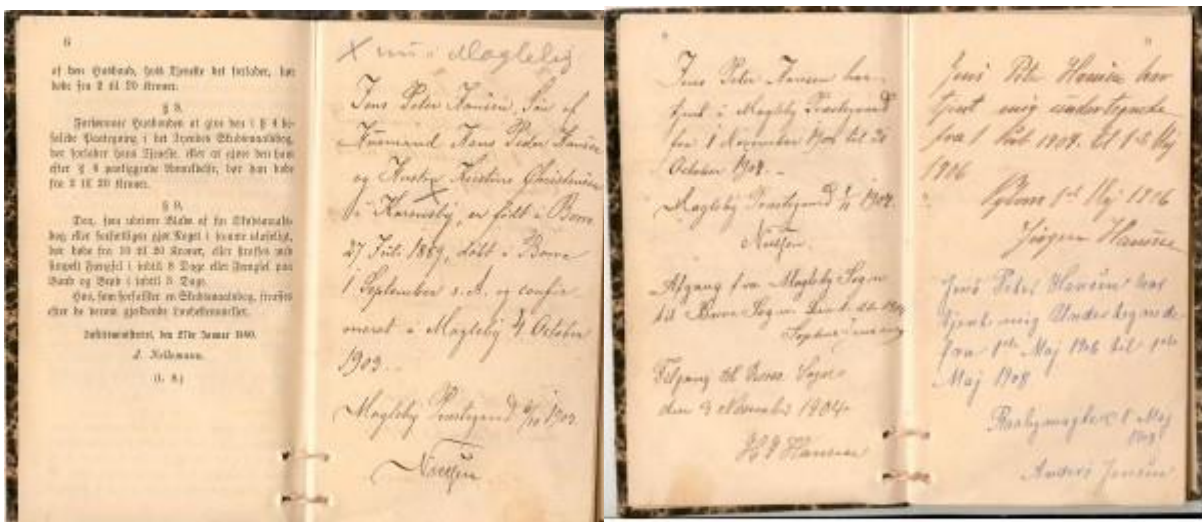 6
af den Husbond, hvis Tjeneste det forlader, bør
bøde fra 2 til 20 Kroner.
§ 8.
Forsømmer Husbonden at give den i § 4 be-
falede Paategning i det Tyendes Skudsmaalsbog,
der forlader hans Tjeneste, eller at gjøre den ham
efter § 4 paaliggende Anmeldelse, bør han bøde
fra 2 til 20 Kroner.
§ 9.
Den, som udriver Blade af en Skudsmaals-
bog eller forsætligen gjør Noget i samme ulæseligt,
bør bøde fra 10 til 20 Kroner, eller straffes med
simpelt Fængsel i indtil 8 Dage eller Fængsel paa
Vand og Brød i indtil 3 Dage.
Den, som forfalsker en Skudsmaalsbog, straffes
efter de derom gjældende Lovbestemmelser.
Justitsministeriet, den 27de Januar
J. Nellemann.
(L. S.)
X nu i Magleby
Jens Peter Hansen, Søn af
Huusmand Hans Peder Hansen
og Hustru Kirstine Christensen
i Borre
27 Juli 1889, døbt i Borre
1 September s. A. og confir-
meret i Magleby 4 October
1903.
Magleby Præstegaard 1903.
Jens Peter Hansen har
tjent i Magleby Præstegaard
fra 1 November til
October 1904.
Magleby Præstegaard 1/11 1904.
Afgang fra Magleby Sogn
til Borre Sogn
Tilgang til Borre Sogn
den 3 November 1904
Hansen
Jens Peter Hansen har
tjent mig undertegnede
fra 1 1904 til 1st Maj
1906
1st Maj 1906
Jørgen Hansen
Jens Peter Hansen har
tjent mig Undertegnede
fra 1ste Maj 1906 til 1ste
Maj 1908
Maj
1908
Anders Jensen